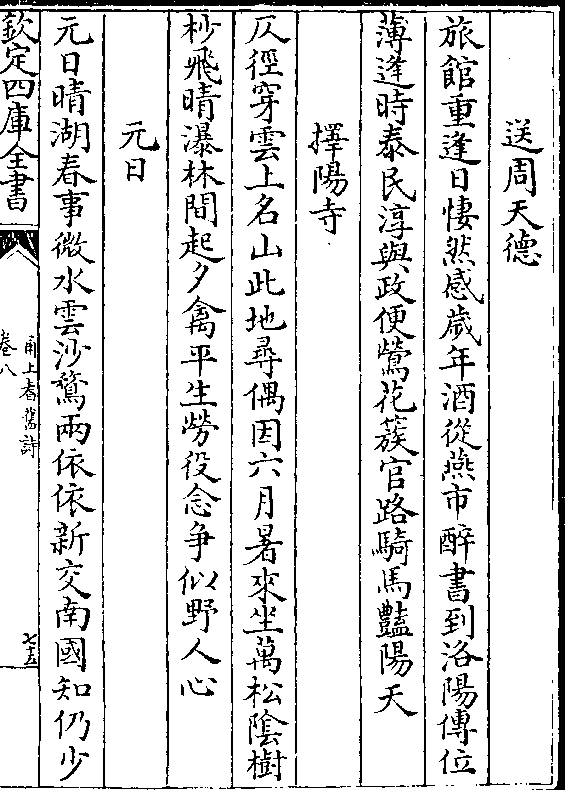 送周天德
旅館重逢日悽然感歳年酒從燕市醉書到洛陽傳位
薄逢時泰民淳與政便鶯花簇官路騎馬豔陽天
擇陽寺
仄徑穿雲上名山此地尋偶因六月暑來坐萬松陰樹
杪飛晴瀑林間起夕禽平生勞役念爭似野人心
元日
元日晴湖春事微水雲沙鶩兩依依新交南國知仍少
欽定四庫全書
甬上耆舊詩
卷八
七五